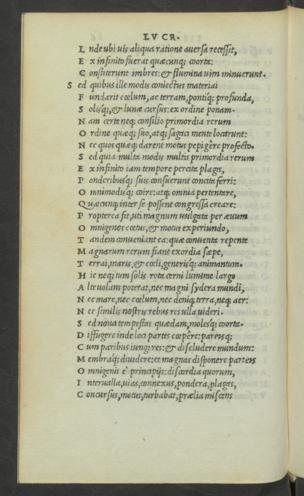 LVCR.
I nde ubi uis aliqua ratione auersa recessit,
E x infinito fuerat quæcunq; coorta:
C onstiterunt imbres: et flumina uim minuerunt.
S ed quibus ille modis coniectus materiai
F undarit cœlum, ac terram, pontiq; profunda,
S olisq;, et lunæ cursus: ex ordine ponam.
N am certe neq; consilio primordia rerum
O rdine quæq; suo, atq; sagaci mente locarunt:
N ec quos quæq; darent motus pepigere profecto.
S ed quia multa modis multis primordia rerum
E x infinito iam tempore percita plagis,
P onderibusq; suis consuerunt concita ferri:
O mnimodisq; coire: atq; omnia pertentare,
Q uæcunq; inter se possent congressa creare:
P ropterea fit, uti magnum uulgata per æuum
O mnigenos cœtus, et motus experiundo,
T andem conueniant ea: quæ conuenta repente
M agnarum rerum fiant exordia sæpe,
T errai, maris, et cœli, generisq; animantum.
H ic neq; tum solis rota cerni lumine largo
A lte uolans poterat, nec magni sydera mundi,
N ec mare, nec cœlum, nec deniq; terra, neq; aer:
N ec similis nostris rebus res ulla uideri.
S ed noua tempestas quædam, molesq; coorta.
D iffugere inde loci partes cœpere: paresq;
C um paribus iungi res: et discludere mundum:
M embraq; diuidere: et magnas disponere parteis
O mnigenis è principijs: discordia quorum,
I nterualla, uias, connexus, pondera, plagas,
C oncursus, motus, turbabat, prælia miscens